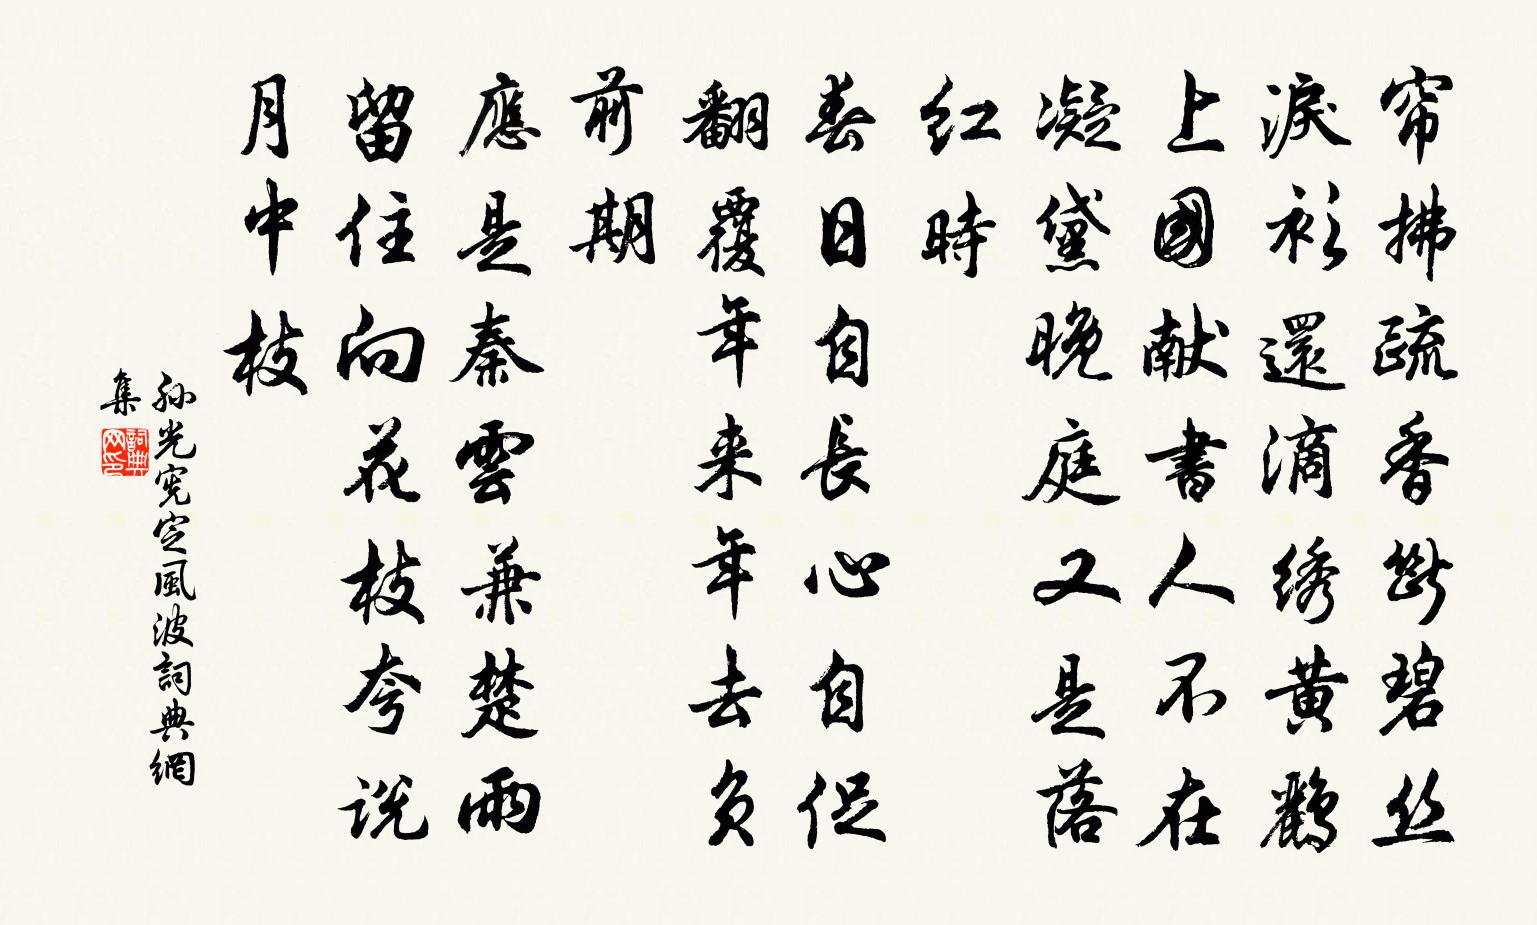 帘拂疏香斷碧丝
淚衫還滴绣黄鸝
上國献書人不在
凝黛晚庭又是落
红時
春日自長心自促
翻覆年来年去负
前期
應是秦雲兼楚雨
留住向花枝夸说
月中枝
孙光宪定風波詞典網
集
詞典
网印